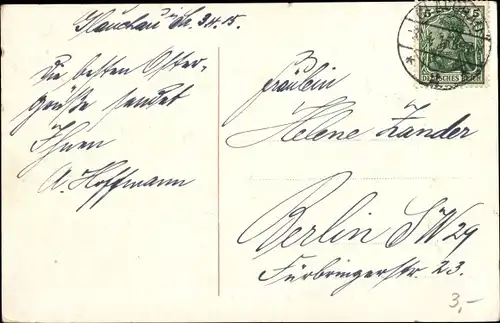 Glauchau i. Sa. 3.4.15.
Die besten Oster-
grüße sendet
Ihnen
A. Hoffmann
Fräulein
Helene Zander
Berlin SW 29
Fürbringerstr. 23.
3,-
DEUTSCHES REICH